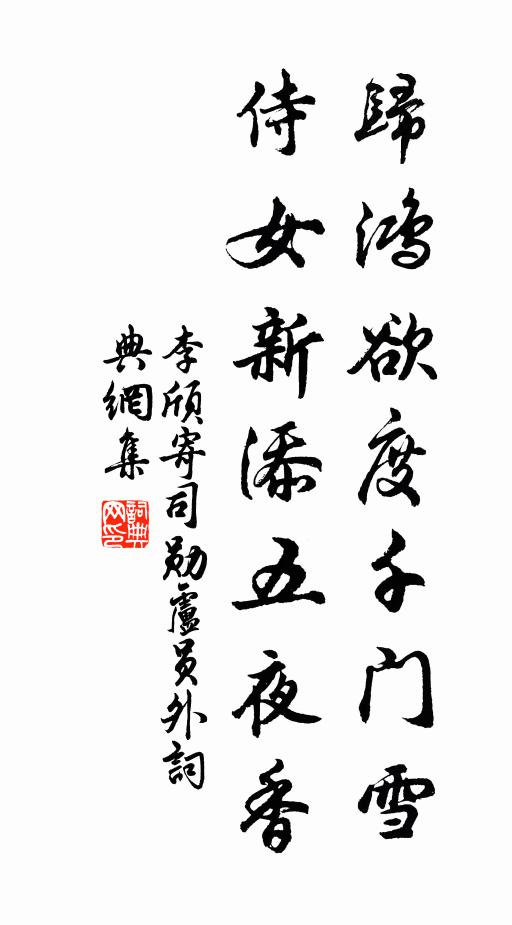 歸鴻欲度千門雪
侍女新添五夜香
李頎寄司勛盧員外詞
典網集
詞典网印